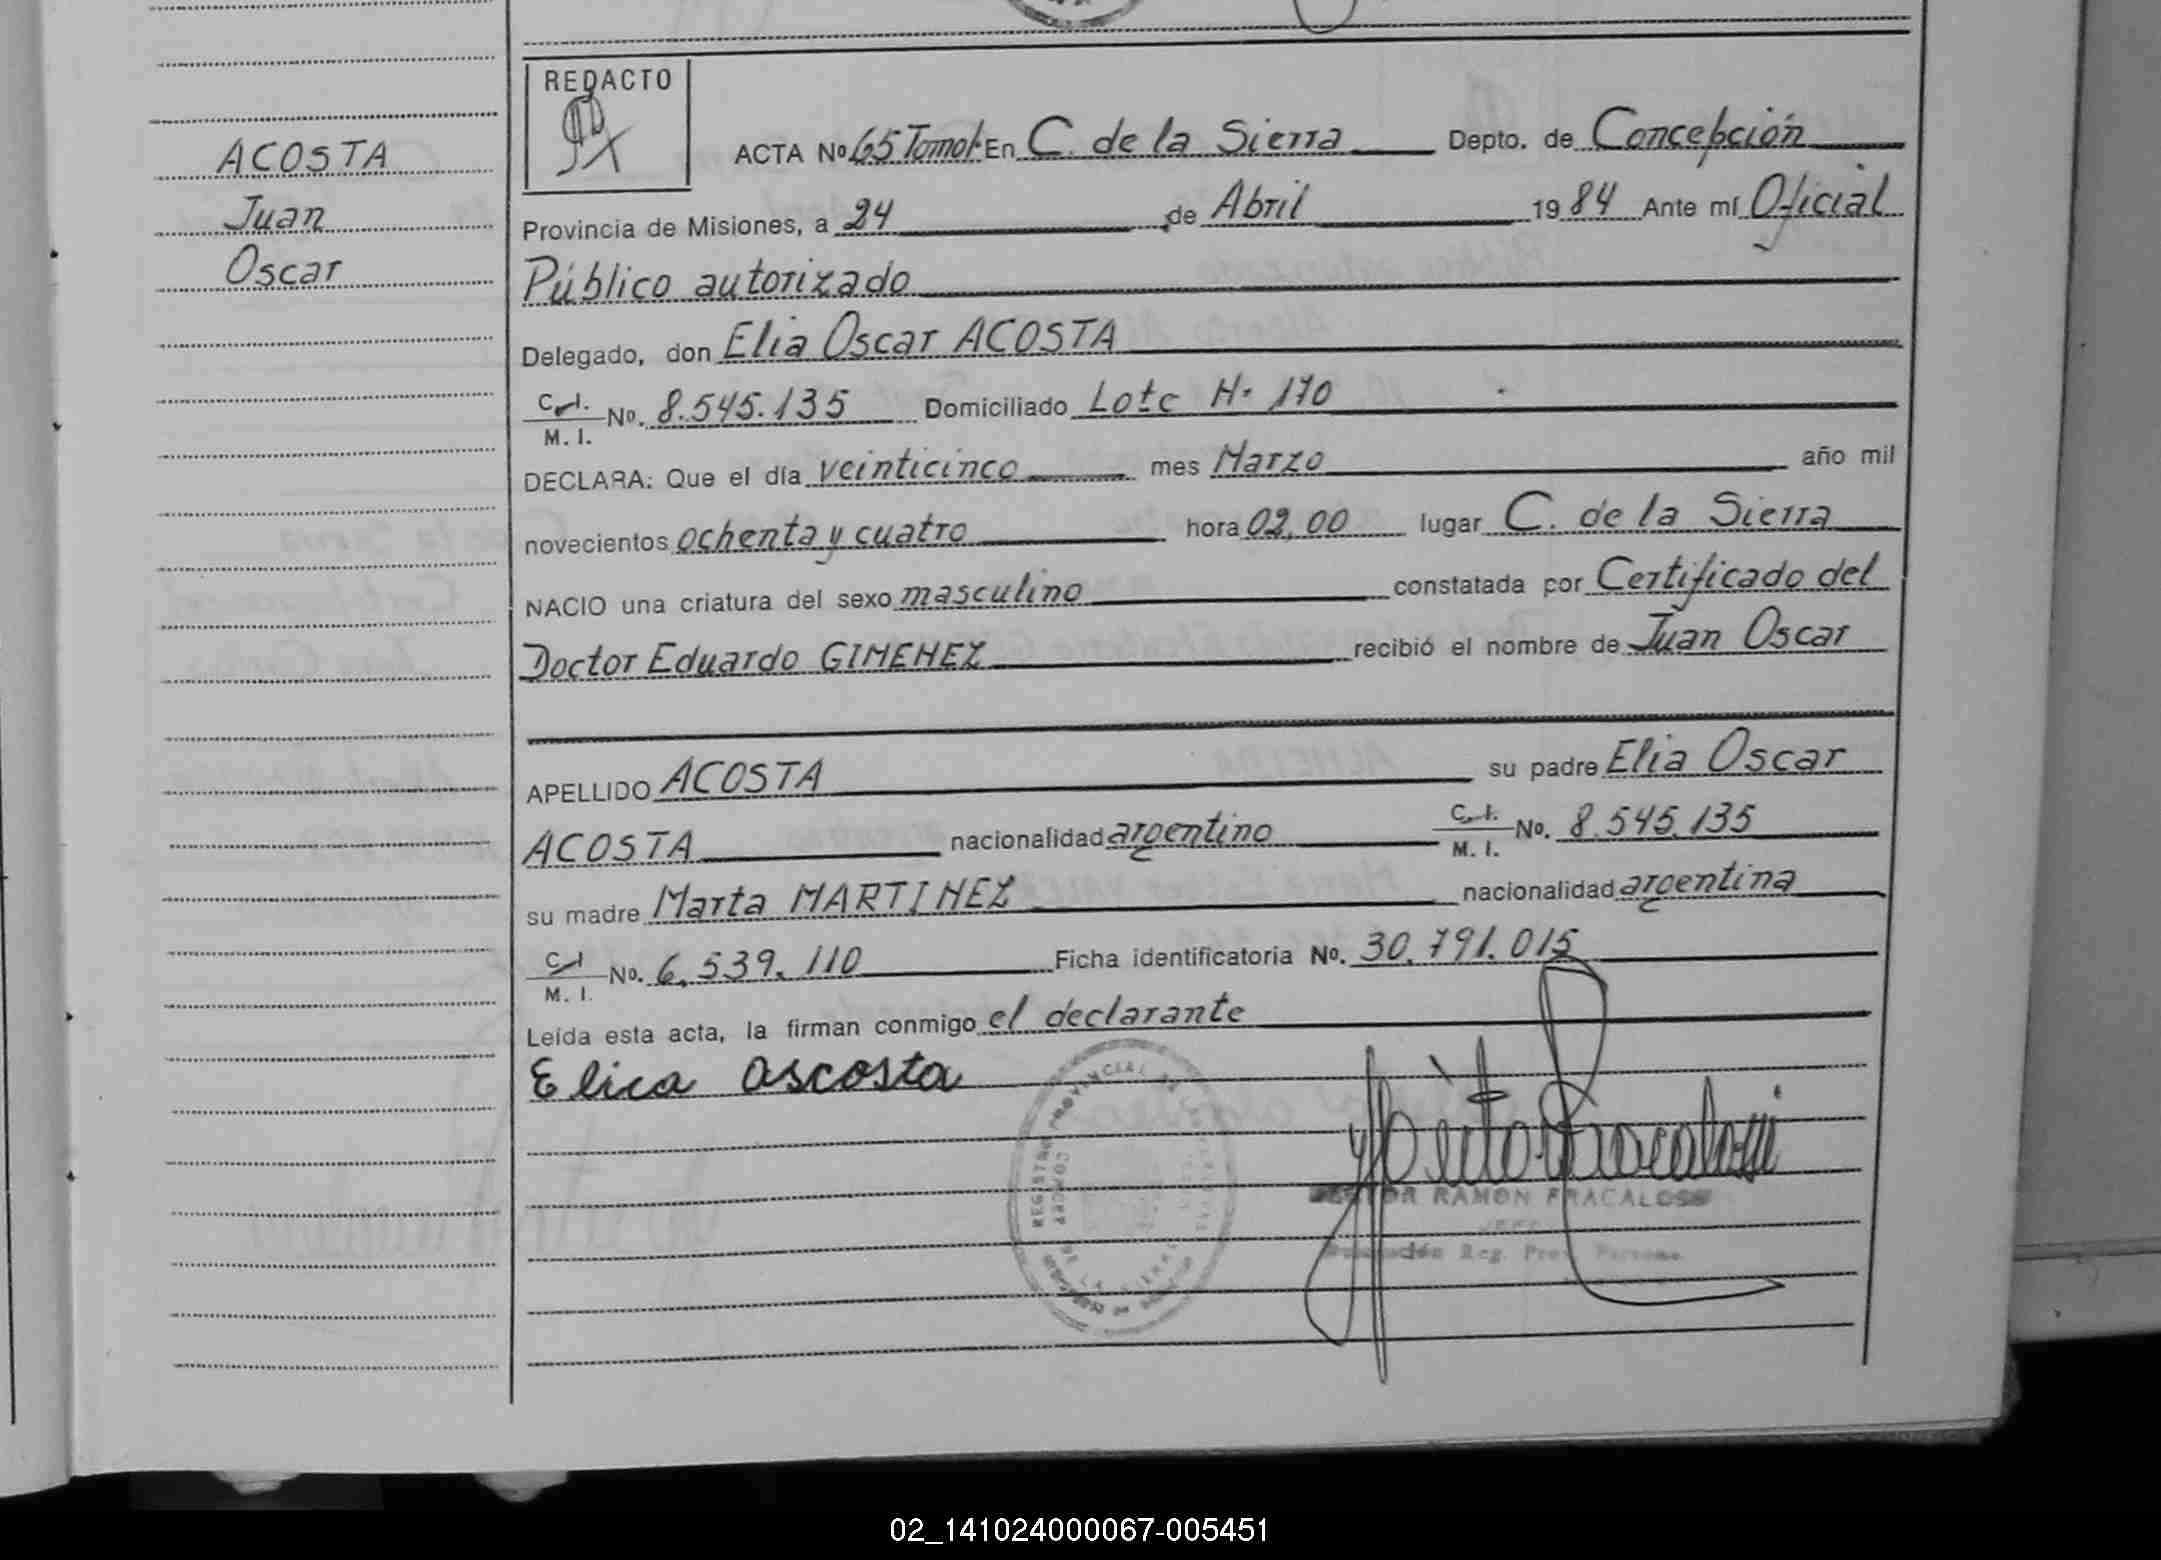 ACOSTA
Juan
Oscar
REDACTO
ACTA Nº 65 Tomo I En C. de la Sierra Depto. de Concepción
Provincia de Misiones, a 24 de Abril 1984 Ante mí Oficial
Público autorizado
Delegado, don Elia Oscar ACOSTA
C. I.
M. I. No. 8.545.135 Domiciliado Lote H. 170
DECLARA: Que el día veinticinco mes Marzo año mil
novecientos ochenta y cuatro hora 02,00 lugar C. de la Sierra
NACIO una criatura del sexo masculino constatada por Certificado del
Doctor Eduardo GIMENEZ recibió el nombre de Juan Oscar
APELLIDO ACOSTA su padre Elia Oscar
ACOSTA nacionalidad argentino C. I.
M. I. No. 8.545.135
su madre Marta MARTINEZ nacionalidad argentina
C. I.
M. I. No. 6.539.110 Ficha identificatoria No. 30.791.015
Leída esta acta, la firman conmigo el declarante
Elica ascosta
REGISTRO PROVINCIAL DE
DE LA SIERRA
RAMON FRACALOSSI
JEFE
Reg. Prov. Persons.
02_141024000067-005451